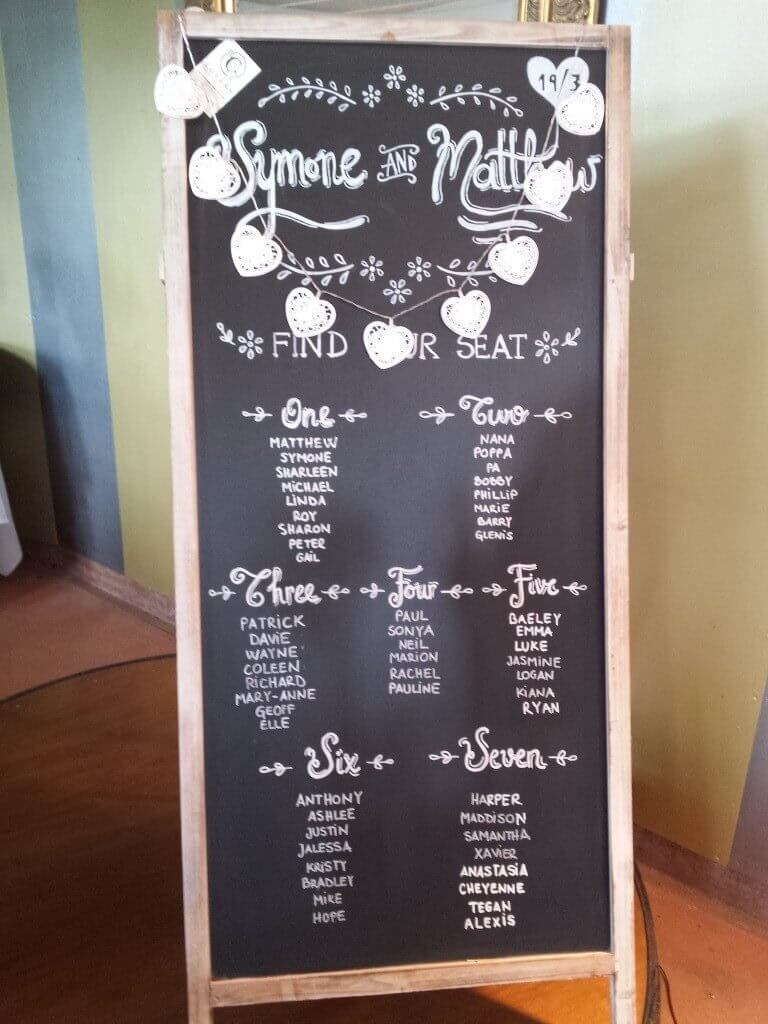 19/3
Symone AND Matthew
FIND OUR SEAT
One
MATTHEW
SYMONE
SHARLEEN
MICHAEL
LINDA
ROY
SHARON
PETER
GAIL
Two
NANA
POPPA
PA
BOBBY
PHILLIP
MARIE
BARRY
GLENIS
Three
PATRICK
DAVIE
WAYNE
COLEEN
RICHARD
MARY-ANNE
GEOFF
ELLE
Four
PAUL
SONYA
NEIL
MARION
RACHEL
PAULINE
Five
BAELEY
EMMA
LUKE
JASMINE
LOGAN
KIANA
RYAN
Six
ANTHONY
ASHLEE
JUSTIN
JALESSA
KRISTY
BRADLEY
MIKE
HOPE
Seven
HARPER
MADDISON
SAMANTHA
XAVIER
ANASTASIA
CHEYENNE
TEGAN
ALEXIS